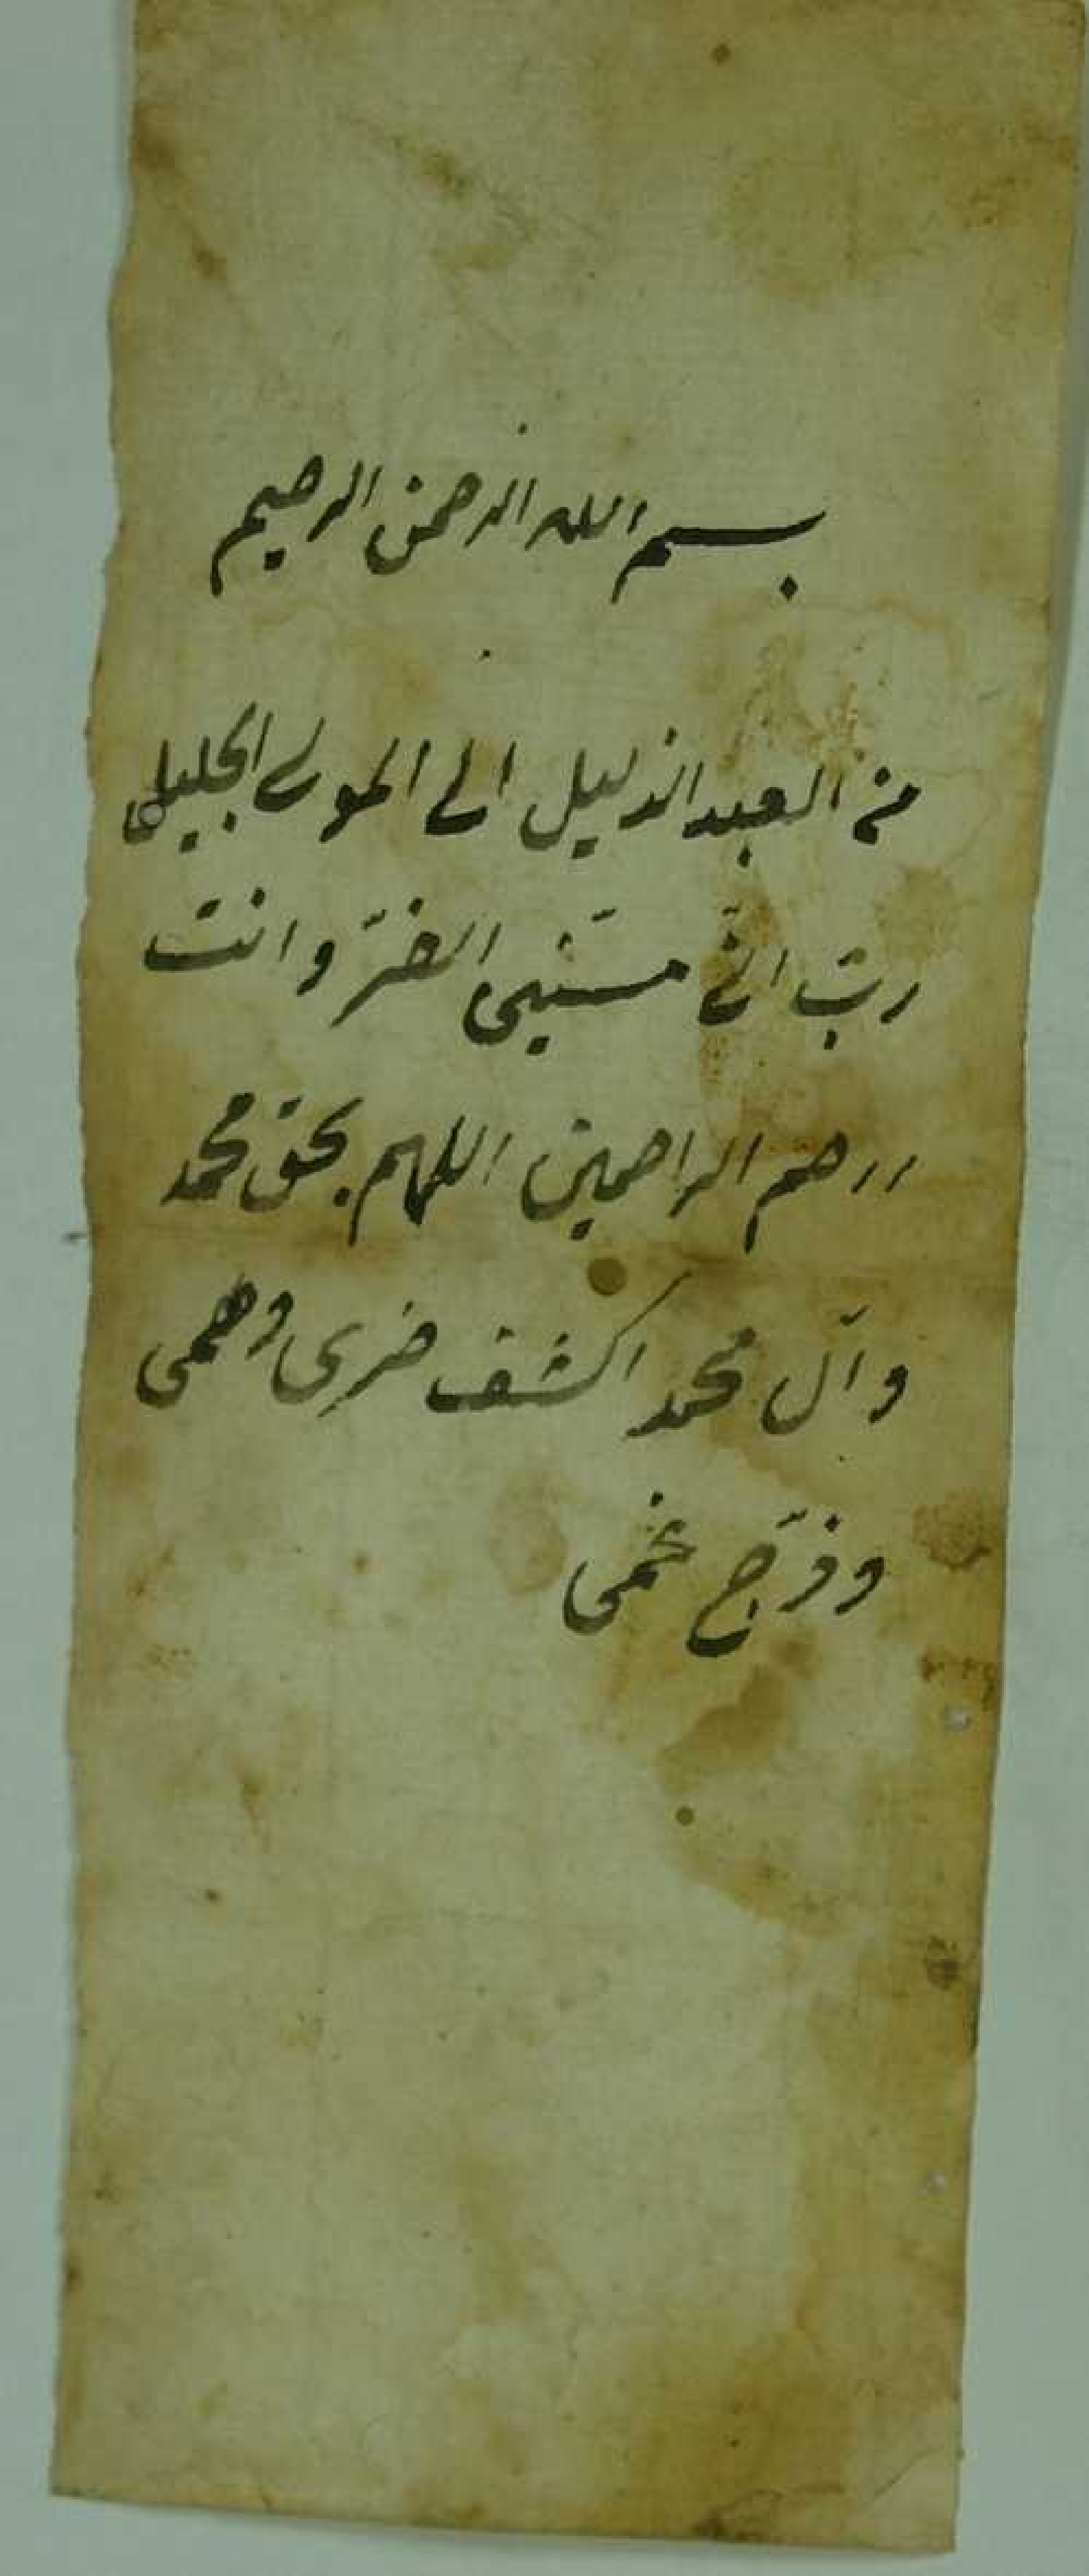 بسم الله الرحمن الرحيم
من العبد الذليل الى المولى الجليل
ربّ انّى مسّنيى الضرّ وانت
اارحم الراحمين اللهم بحق محمد
وآل محمد اكشف ضرى وهمى
وفرّج غمى